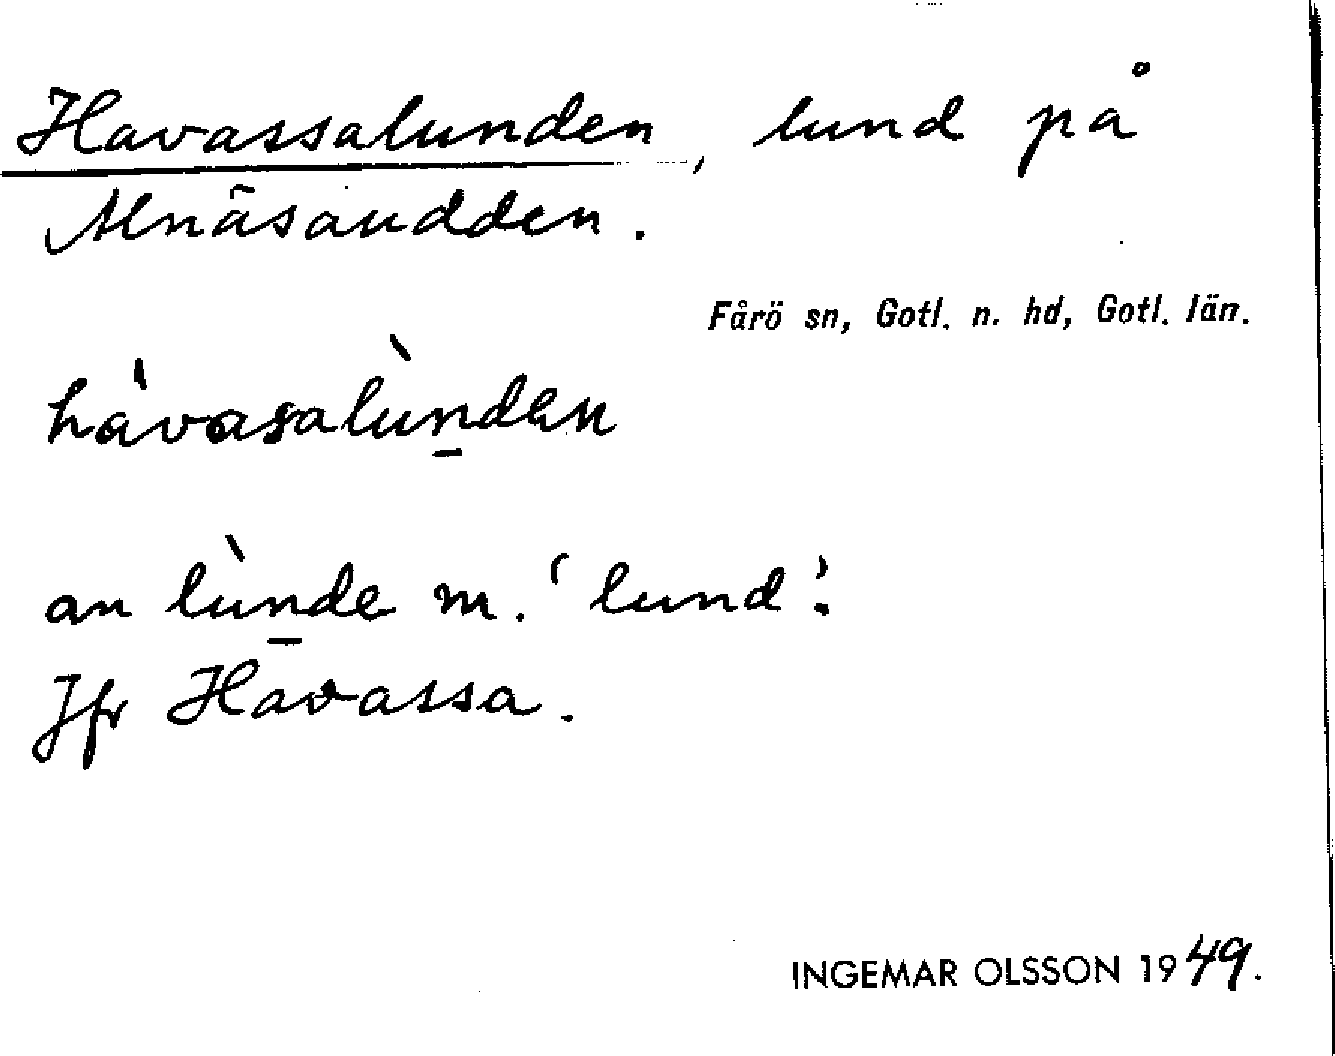 Havassalunden, lund på
Alnäsaudden.
Fårö sn, Gotl. n. hd, Gotl. län.
hàvasalùn̲den
an lùn̲de m. 'lund'.
Jfr Havassa.
INGEMAR OLSSON 1949.